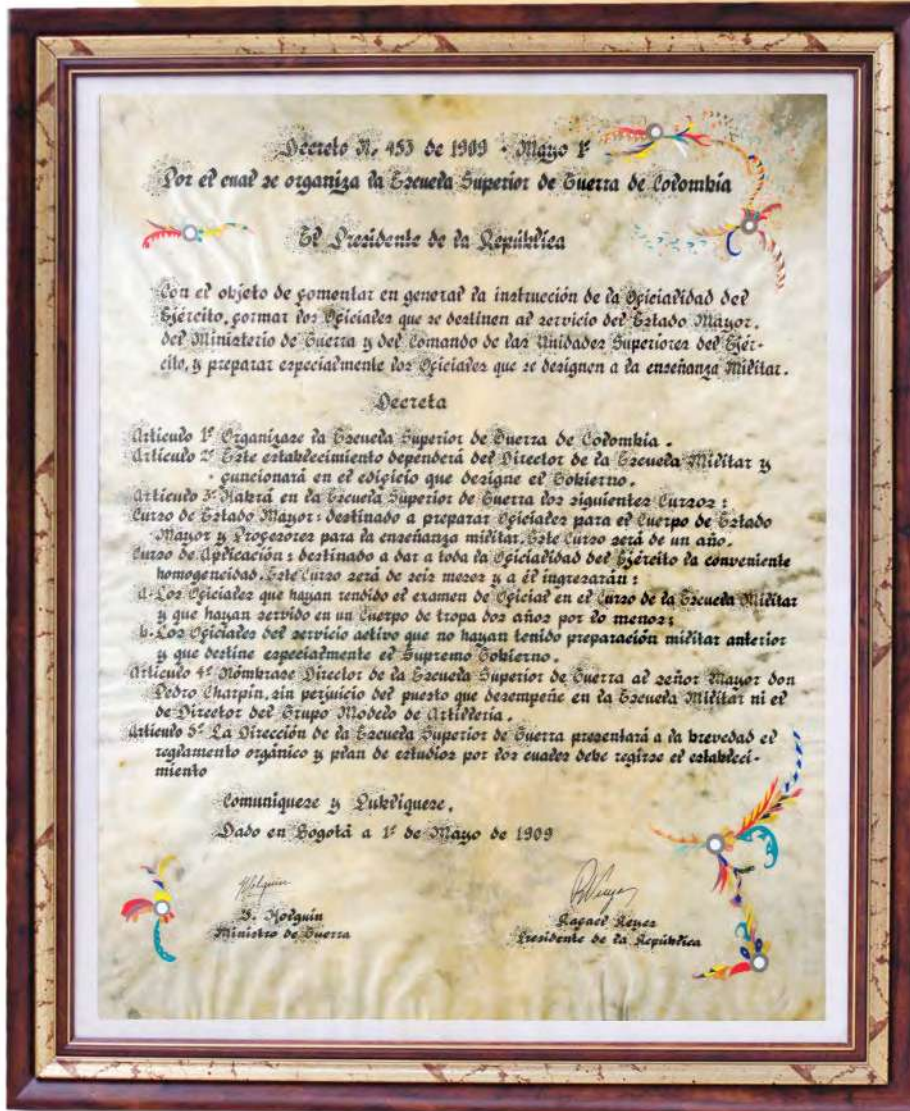 Decreto N. 453 de 1909 - Mayo 1º
Por el cual se organiza la Escuela Superior de Guerra de Colombia
El Presidente de la República
Con el objeto de fomentar en general la instrucción de la Oficialidad del
Ejército, formar los Oficiales que se destinen al servicio del Estado Mayor,
del Ministerio de Guerra y del Comando de las Unidades Superiores del Ejér-
cito, y preparar especialmente los Oficiales que se designen a la enseñanza Militar.
Decreta
Artículo 1º Organízase la Escuela Superior de Guerra de Colombia.
Artículo 2º Este establecimiento dependerá del Director de la Escuela Militar y
funcionará en el edificio que designe el Gobierno.
Artículo 3º Habrá en la Escuela Superior de Guerra los siguientes Cursos:
Curso de Estado Mayor: destinado a preparar Oficiales para el Cuerpo de Estado
Mayor y Profesores para la enseñanza militar. Este Curso será de un año.
Curso de Aplicación: destinado a dar a toda la Oficialidad del Ejército la conveniente
homogeneidad. Este Curso será de seis meses y a él ingresarán:
a- Los Oficiales que hayan rendido el examen de Oficial en el Curso de la Escuela Militar
y que hayan servido en un Cuerpo de tropa dos años por lo menos;
b- Los Oficiales del servicio activo que no hayan tenido preparación militar anterior
y que destine especialmente el Supremo Gobierno.
Artículo 4º Nómbrase Director de la Escuela Superior de Guerra al señor Mayor don
Pedro Charpin, sin perjuicio del puesto que desempeñe en la Escuela Militar ni el
de Director del Grupo Modelo de Artillería.
Artículo 5º La Dirección de la Escuela Superior de Guerra presentará a la brevedad el
reglamento orgánico y plan de estudios por los cuales debe regirse el estableci-
miento
Comuníquese y Publíquese.
Dado en Bogotá a 1º de Mayo de 1909
Holguin
Holguin
Ministro de Guerra
Rafael Reyes
Presidente de la República